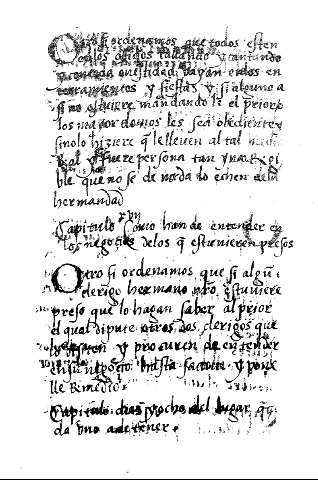 Otro si ordenamos que todos esten
en los oficios rezando y cantando
y questidad vayan en los en
terramientos y fiestas y si alguno a
si no estuviere mandandole el prior
los mayordomos les sea obediente y
si no lo hiziere q̃ le lleven al tal
Real y si fuere persona tan
ble que no se de nada lo echen de la
hermandad
Capitulo xvij Como han de entender en
los negocios delos q̃ estuvieren presos
Otro si ordenamos que si algũ
clerigo hermano nr̃o estuviere
preso que lo hagan saber al prior
el qual dipute otros dos clerigos que
lo y procuren de entender
en su negocio hasta y pone
lle Remedio
Capitulo diez y ocho del lugar q̃
da uno a de tener.